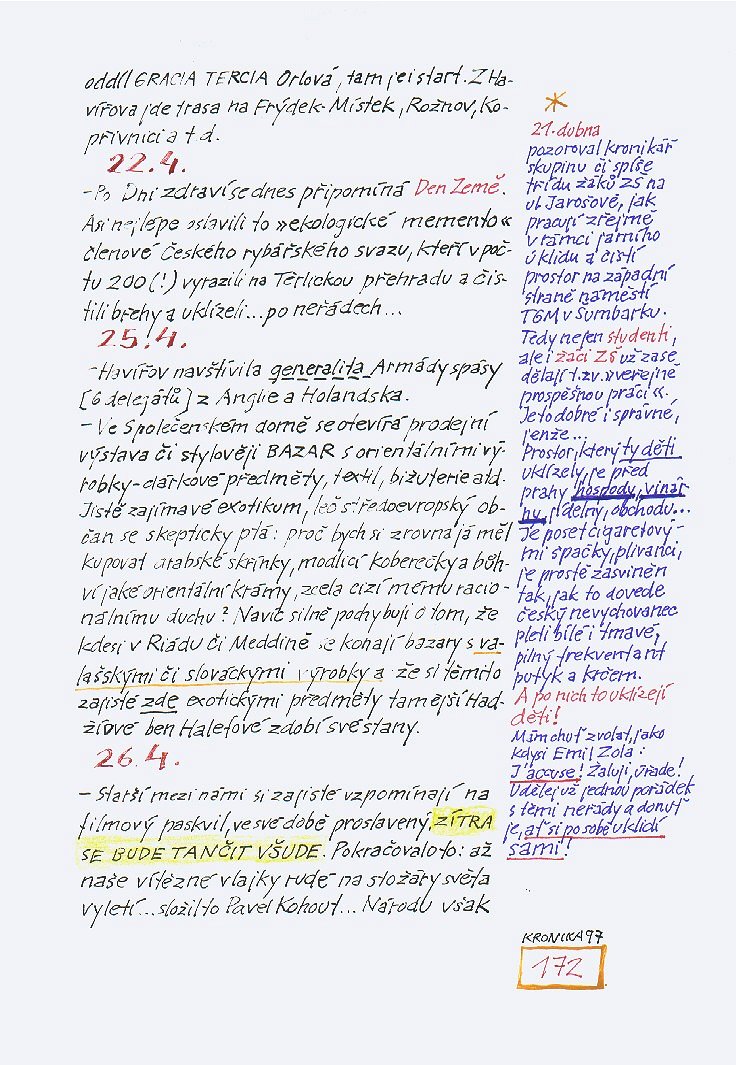 oddíl GRACIA TERCIA Orlová, tam je i start. Z Ha-
vířova jde trasa na Frýdek-Místek, Rožnov, Ko-
přivnici a t.d.
22.4.
- Po Dni zdraví se dnes připomíná Den Země.
Asi nejlépe oslavili to »ekologické memento«
členové Českého rybářského svazu, kteří v poč-
tu 200 (!) vyrazili na Těrlickou přehradu a čis-
tili břehy a uklízeli... po neřádech...
25.4.
- Havířov navštívila generalita Armády spásy
[6 delegátů] z Anglie a Holandska.
- Ve Společenském domě se otevírá prodejní
výstava či stylověji BAZAR s orientálními vý-
robky - dárkové předměty, textil, bižuterie atd.
Jistě zajímavé exotikum, leč středoevropský ob-
čan se skepticky ptá: proč bych si zrovna já měl
kupovat arabské skřínky, modlicí koberečky a bůh-
ví jaké orientální krámy, zcela cizí mému racio-
nálnímu duchu? Navíc silně pochybuji o tom, že
kdesi v Riádu či Meddíně se konají bazary s va-
lašskými či slováckými výrobky a že si těmito
zajisté zde exotickými předměty tamější Had-
žiové ben Halefové zdobí své stany.
26.4.
- Starší mezi námi si zajisté vzpomínají na
filmový paskvil, ve své době proslavený, ZÍTRA
SE BUDE TANČIT VŠUDE. Pokračovalo to: až
naše vítězné vlajky rudé na stožáry světa
vyletí... složil to Pavel Kohout... Národu však
*
21. dubna
pozoroval kronikář
skupinu či spíše
třídu žáků ZŠ na
ul. Jarošově, jak
pracují zřejmě
v rámci jarního
úklidu a čistí
prostor na západní
straně náměstí
TGM v Šumbarku.
Tedy nejen studenti,
ale i žáci ZŠ už zase
dělají t.zv. »veřejně
prospěšnou práci«.
Je to dobré i správné,
jenže...
Prostor, který ty děti
uklízely, je před
prahy hospody, vinár-
ny, jídelny, obchodu...
Je poset cigaretový-
mi špačky, plivanci,
je prostě zasviněn
tak, jak to dovede
český nevychovanec
pleti bílé i tmavé,
pilný frekventant
putyk a krčem.
A po nich to uklízejí
děti!
Mám chuť zvolat, jako
kdysi Emil Zola:
J'accuse! Žaluji, úřade!
Udělej už jednou pořádek
s těmi neřády a donuť
je, ať si po sobě uklidí
sami!
KRONIKA 97
172